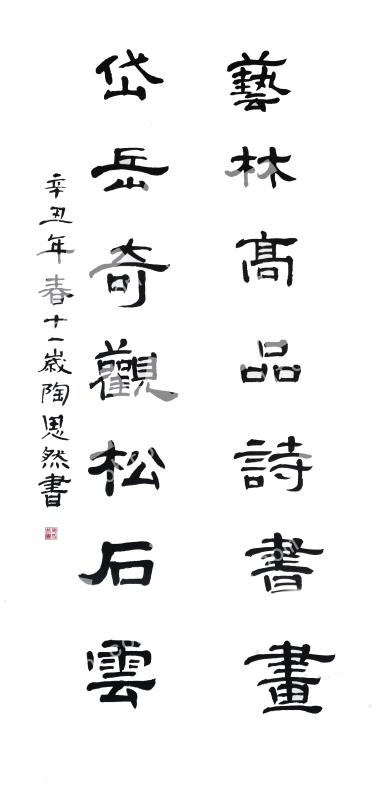 藝林高品詩書畫
岱岳奇觀松石雲
辛丑年春十一歲陶思然書